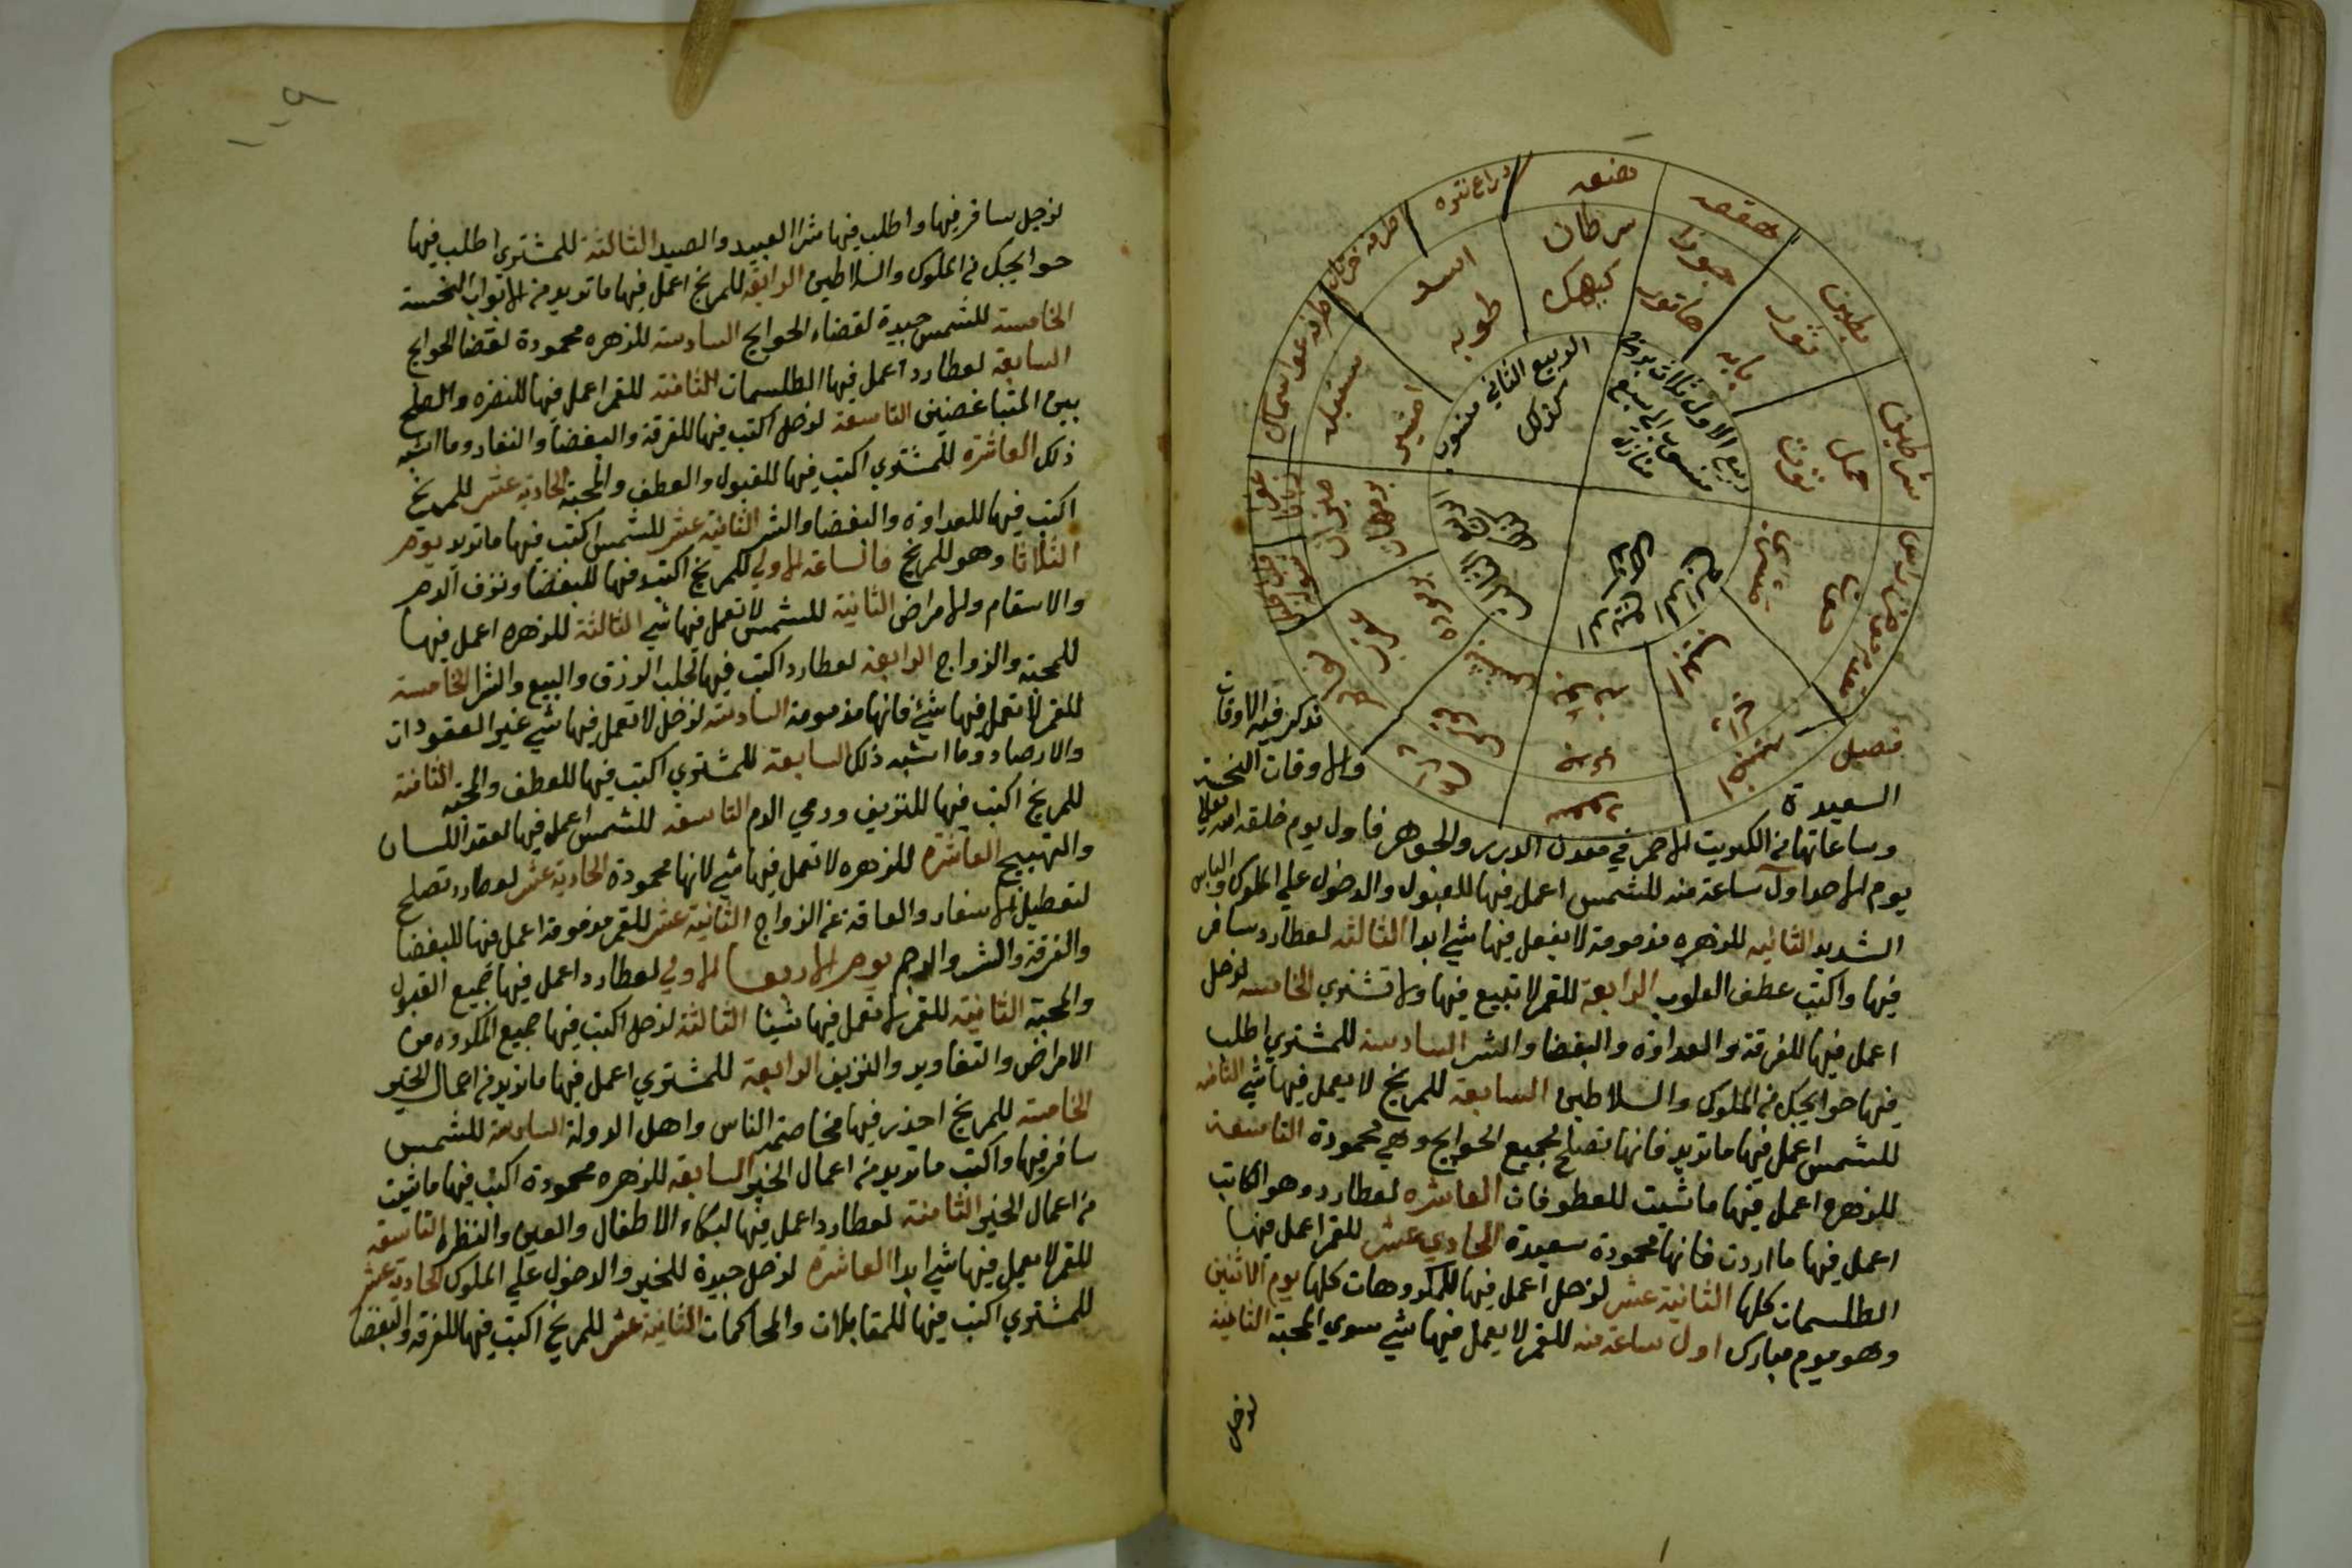 هنعه
هقعه
بطين
شرطين
دراع نتره
سرطان
كيهك
جوزا
هاتور
ثور
بابه
حمل
توت
اسد
طوبه
سنبله
امشير
ميزان
برمهات
عقرب
برموده
قوس
بشنس
جدي
بونه
حوت
مسرى
الربيع الثاني
كذلك
ربيع الاول ثلاث بروج
منازل
فصل
نذكر فيه الاوقات
السعيدة
والاوقات النحسة
وساعاتها من الكبريت الاحمر في معدن الدرر والجوهر فاول يوم خلقه الله تعالى
يوم الاحد اول ساعة منه للشمس اعمل فيها للقبول والدخول علي الملوك والباس
الشديد الثانيه للزهره مذمومة لا يفعل فيها شي ابدا الثالثه لعطارد سافر
فيها واكتب عطف القلوب الرابعة للقمر لا تبيع فيها ولا تشتري الخامسه لزحل
اعمل فيها للفرقة والعداوة والبغضا والشر السادسة للمشتري اطلب
فيها حوايجك من الملوك والسلاطين السابعة للمريخ لا يعمل فيها شي الثامنه
للشمس اعمل فيها ما تريد فانها تصلح لجميع الحوايج وهي محمودة التاسعة
للزهره اعمل فيها ما شيت للعطوفات العاشره لعطارد وهو الكاتب
اعمل فيها ما اردت فانها محمودة سعيدة الحادي عشر للقمر اعمل فيها
الطلسمات كلها الثانية عشر لزحل اعمل فيها للمكروهات كلها يوم الاثنين
وهو يوم مبارك اول ساعة منه للقمر لا يعمل فيها شي سوي المحبة الثانية
لزحل
١٠٩
لزحل سافر فيها واطلب فيها شرا العبيد والصيد الثالثة للمشتري اطلب فيها
حوايجك من الملوك والسلاطين الرابعه للمريخ اعمل فيها ما تريد من الابواب النحسة
الخامسة للشمس جيدة لقضاء الحوايج السادسة للزهره محمودة لقضا الحوايج
السابعة لعطارد اعمل فيها الطلسمات الثامنة للقمر اعمل فيها والصلح
بين المتباغضين التاسعة لزحل اكتب فيها للفرقة والبغضا والنفار وما اشبه
ذلك العاشرة للمشتري اكتب فيها للقبول والعطف والمحبة الحادية عشر للمريخ
اكتب فيها للعداوة والبغضا والشر الثانية عشر للشمس اكتب فيها ما تريد يوم
الثلاثا وهو للمريخ فالساعة الاولي للمريخ اكتب فيها للبغضا ونزف الدم
والاسقام والامراض الثانية للشمس لا تعمل فيها شي الثالثة للزهره اعمل فيها
للمحبة والزواج الرابعة لعطارد اكتب فيها لجلب الرزق والبيع والشرا الخامسة
للقمر لا تعمل فيها شي فانها مذمومة السادسة لزحل لا تعمل فيها شي غير العقودات
والارصاد وما اشبه ذلك السابعة للمشتري اكتب فيها للعطف والمحبة الثامنة
للمريخ اكتب فيها للنزيف ورمي الدم التاسعة للشمس اعمل فيها لعقد اللسان
والتهييج العاشرة للزهره لا تعمل فيها شي لانها محمودة الحادية عشر لعطارد تصلح
لتعطيل الاسفار والعاقة عن الزواج الثانية عشر للقمر مذمومة اعمل فيها للبغضا
والفرقة والشر والرجم يوم الاربعا الاولي لعطارد اعمل فيها جميع القبول
والمحبة الثانية للقمر لا تعمل فيها شيئا الثالثة لزحل اكتب فيها جميع المكروه من
الامراض والنزيف الرابعة للمشتري اعمل فيها ما تريد من اعمال الخير
الخامسة للمريخ احذر فيها مخاصمة الناس واهل الدولة السادسة للشمس
سافر فيها واكتب ما تريد من اعمال الخير السابعة للزهره محمودة اكتب فيها ما شيت
من اعمال الخير الثامنة لعطارد اعمل فيها لبكاء الاطفال والعين والنظره التاسعة
للقمر لا يعمل فيها شي ابدا العاشرة لزحل جيدة للخير والدخول علي الملوك الحادية عشر
للمشتري اكتب فيها للمقابلات والمحاكمات الثانية عشر للمريخ اكتب فيها للفرقه والبغضا